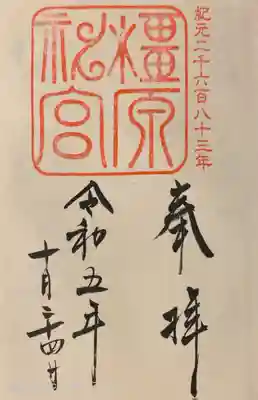 紀元二千六百八十三年
橿原
神宮
奉拝
令和五年
十月二十四日